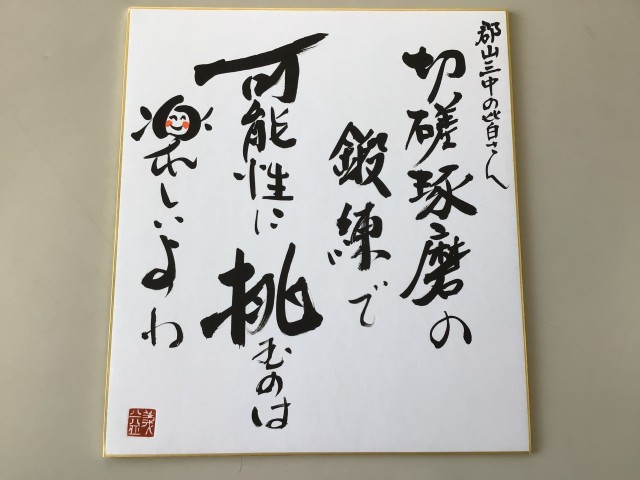 郡山三中の皆さん
切磋琢磨の
鍛練で
可能性に挑むのは
楽しいよね